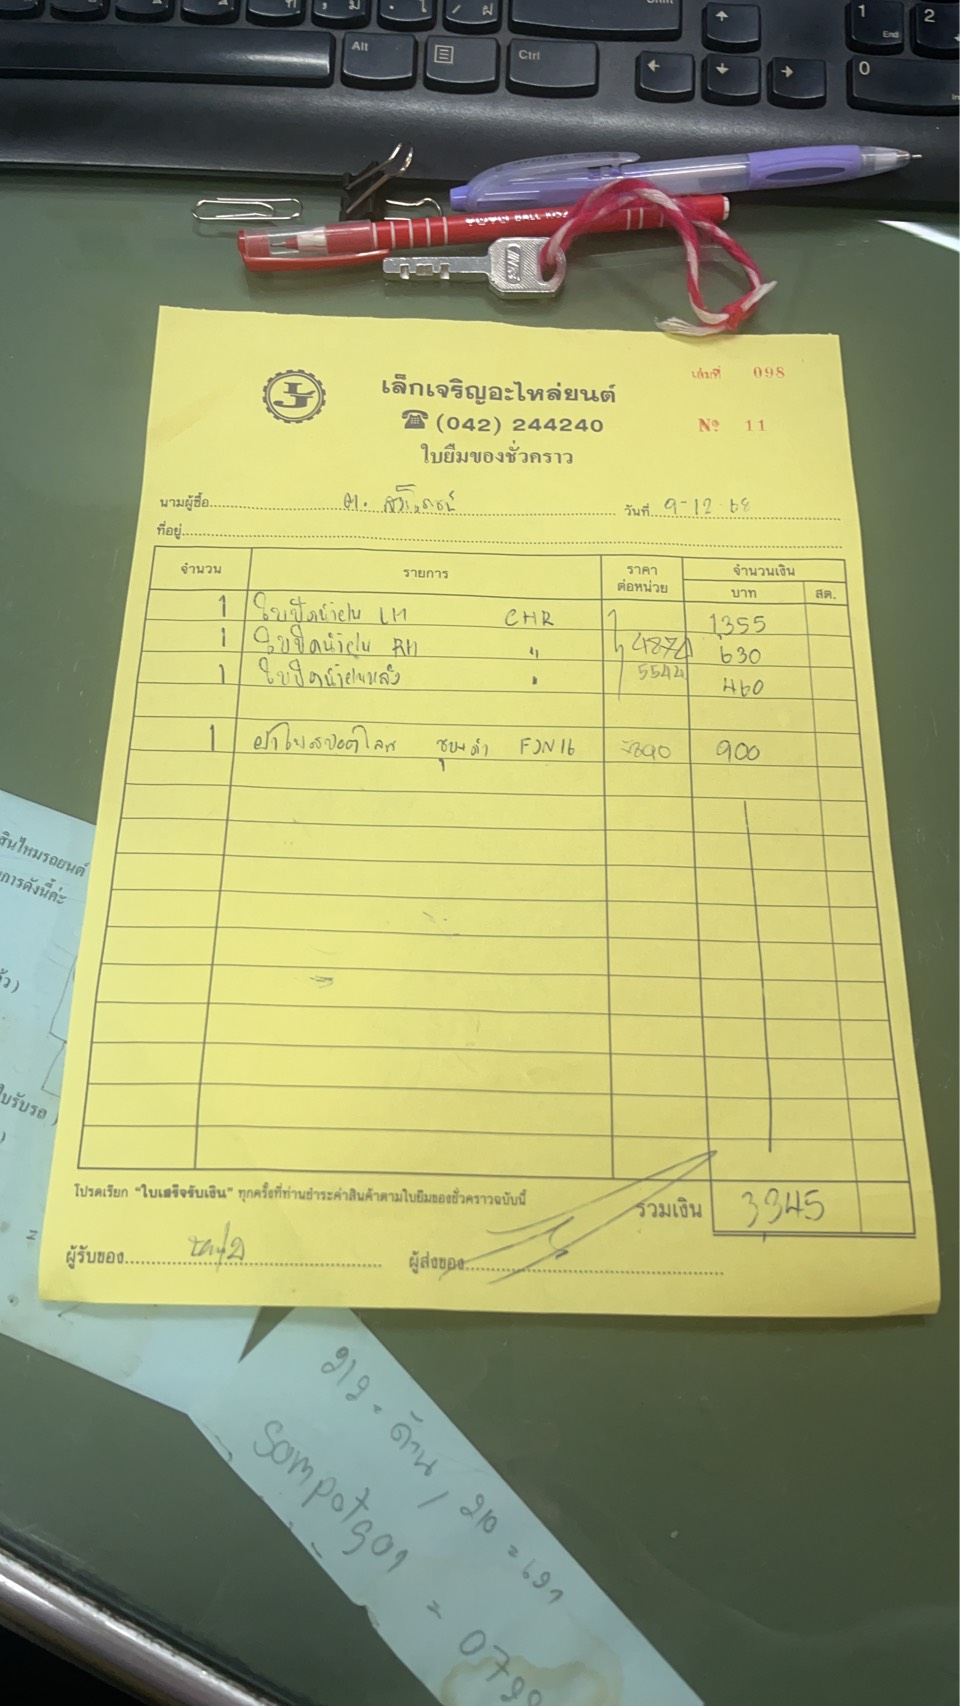 Alt
Ctrl
Shift
1 End
2
0
BALL
เล็กเจริญอะไหล่ยนต์
เล่มที่ 098
(042) 244240
Nº 11
ใบยืมของชั่วคราว
นามผู้ซื้อ
วันที่ 9-12-68
ที่อยู่
จำนวน รายการ ราคาต่อหน่วย จำนวนเงิน
บาท สต.
1 ใบปัดน้ำฝน LH CHR 1,355
1 ใบปัดน้ำฝน RH " 4874 630
1 ใบปัดน้ำฝนหลัง " 5544 460
1 ชุบดำ 890 900
โปรดเรียก "ใบเสร็จรับเงิน" ทุกครั้งที่ท่านชำระค่าสินค้าตามใบยืมของชั่วคราวฉบับนี้
รวมเงิน 3,345
ผู้รับของ
ผู้ส่งของ
สินไหมรถยนต์
การดังนี้ค่ะ
ใบรับรถ )
212 = ด้าน / 210 =
= 0799